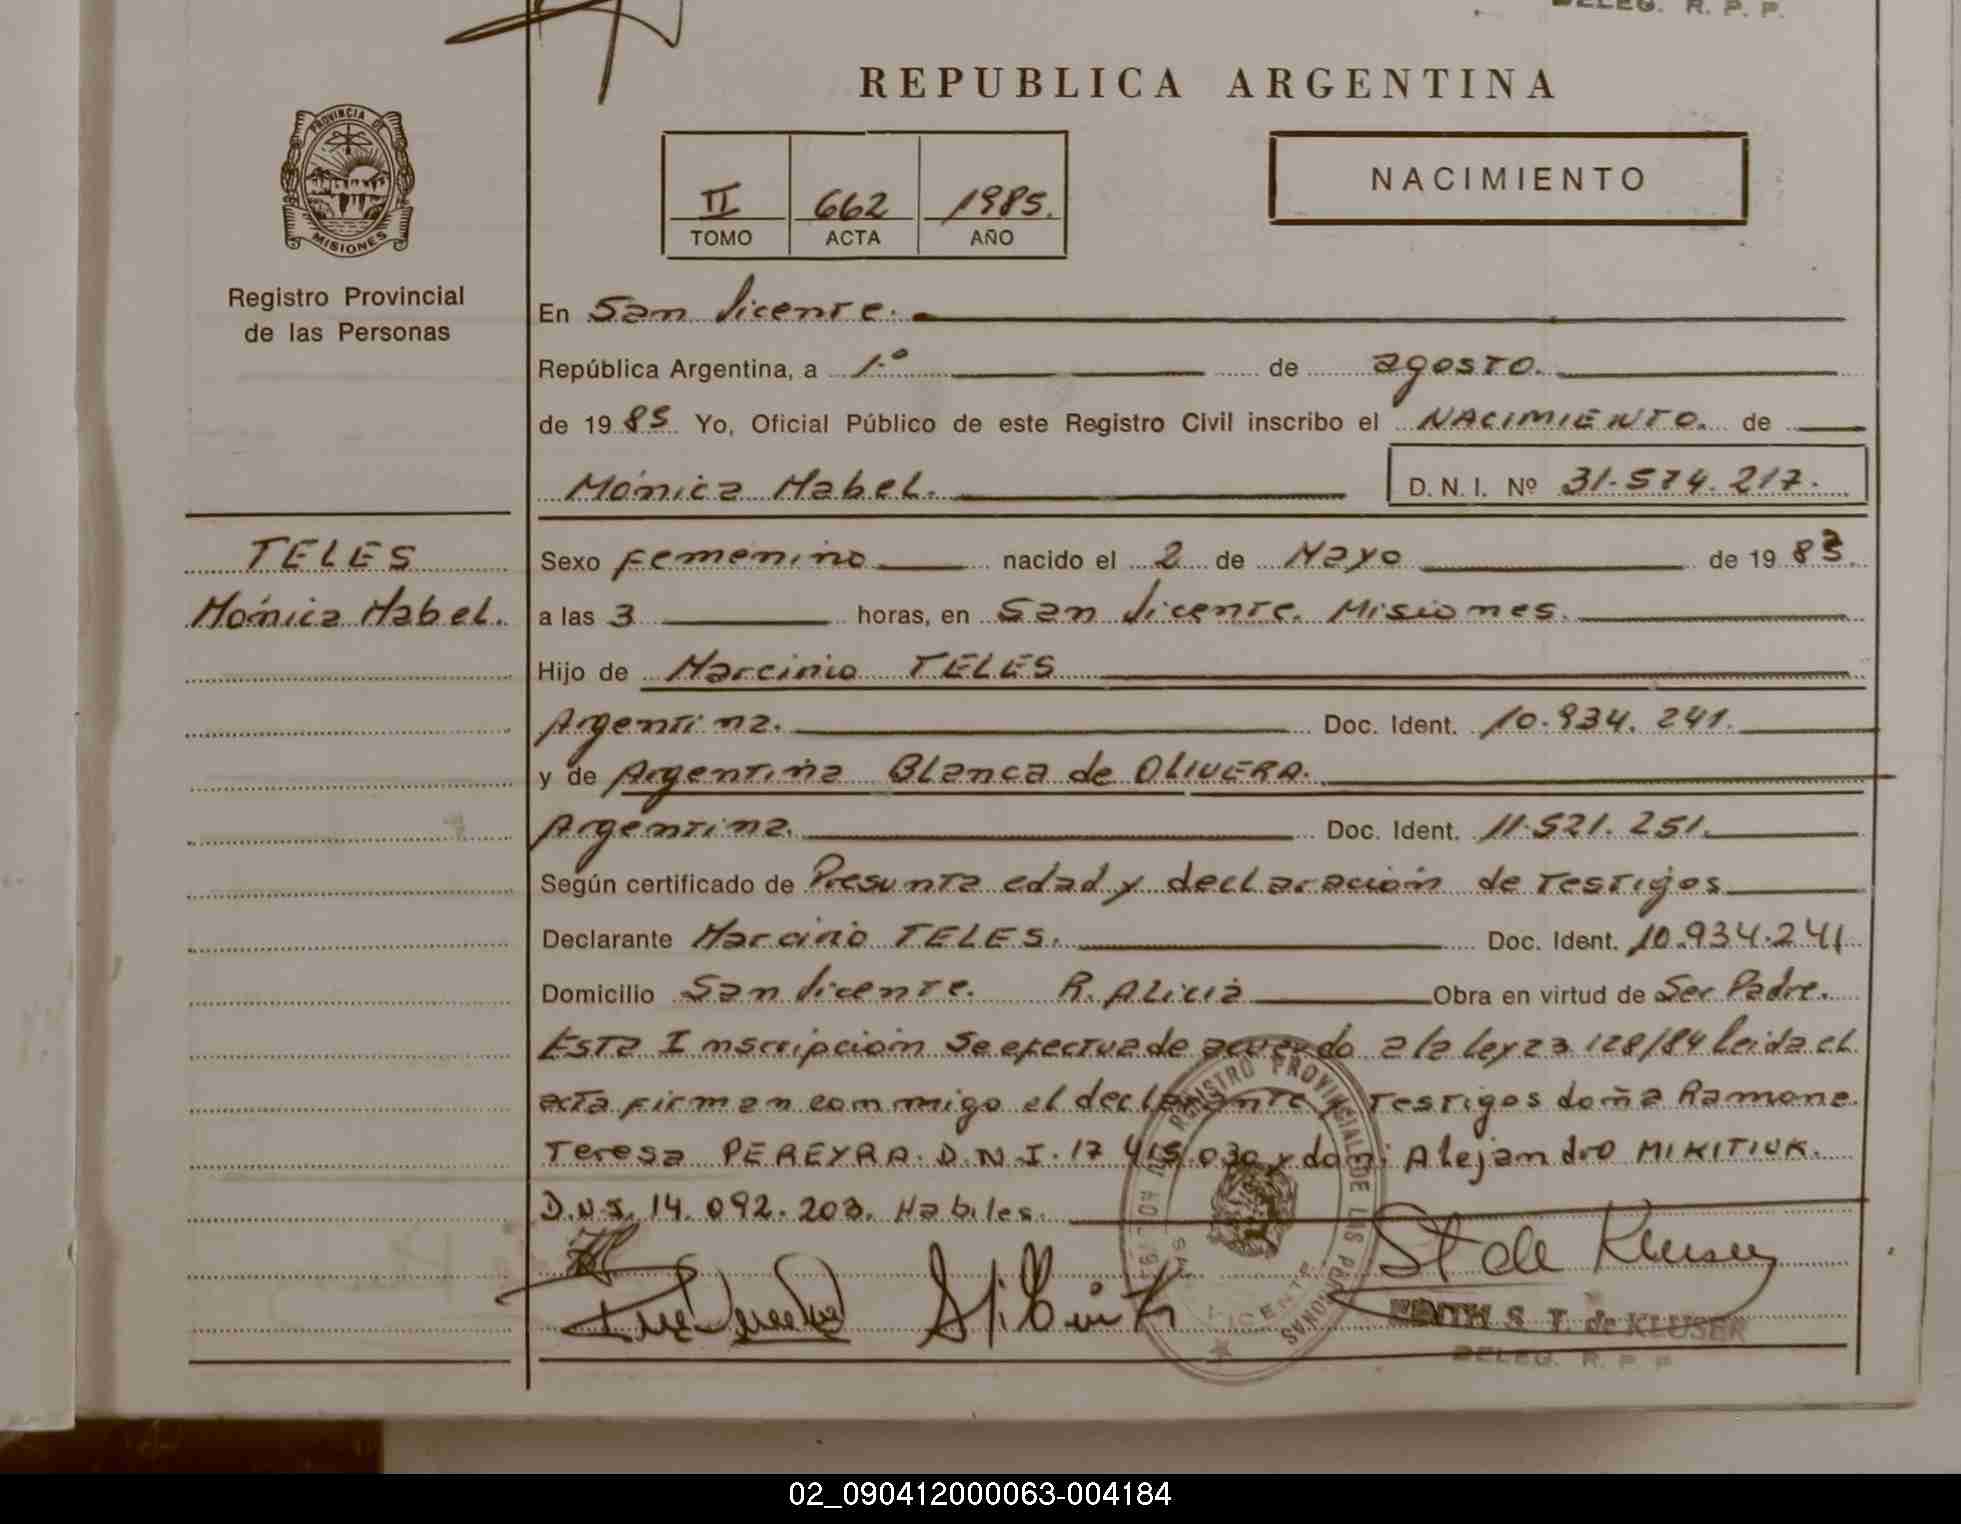 DELEG. R. P. P.
REPUBLICA ARGENTINA
PROVINCIA DE
MISIONES
Registro Provincial
de las Personas
II 662 1985.
TOMO ACTA AÑO
NACIMIENTO
En San Vicente.
República Argentina, a 1º de agosto.
de 1985 Yo, Oficial Público de este Registro Civil inscribo el NACIMIENTO. de
Mónica Mabel. D. N. I. Nº 31.574.217.
TELES
Mónica Mabel.
Sexo femenino nacido el 2 de Mayo de 1983.
a las 3 horas, en San Vicente. Misiones.
Hijo de Marcinio TELES
Argentina. Doc. Ident. 10.934.241.
y de Argentina Blanca de OLIVERA.
Argentina. Doc. Ident. 11.521.251.
Según certificado de Presunta edad y declaración de Testigos
Declarante Marcinio TELES. Doc. Ident. 10.934.241
Domicilio San Vicente. R. Alicia Obra en virtud de Ser Padre.
Esta Inscripción Se efectua de acuerdo a la Ley 23 128/84 leida el
acta firman conmigo el declarante y Testigos doña Ramona
Teresa PEREYRA. D.N.I. 17 415.030 y don: Alejandro MIKITIUK.
D.N.I. 14.092.203. Habiles.
REGISTRO PROVINCIAL DE LAS PERSONAS
VICENTE
St de Kluser
EDITH S. T. de KLUSER
DELEG. R. P. P.
02_090412000063-004184